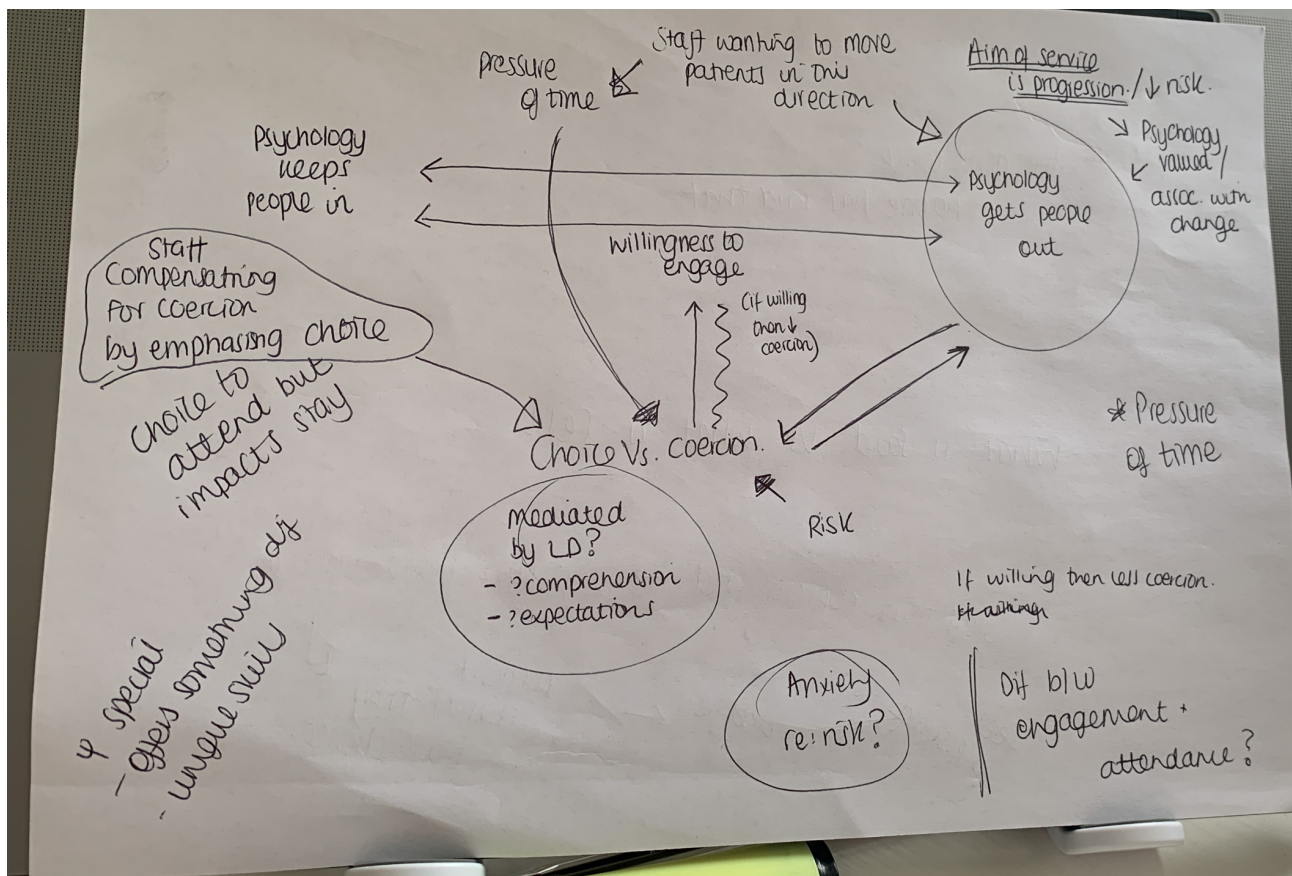 Staff wanting to move
patients in this
direction
Pressure
of time
Aim of service
is progression./↓ risk.
Psychology
valued/
assoc. with
change
Psychology
keeps
people in
Psychology
gets people
out
willingness to
engage
(if willing
then ↓
coercion)
Staff
Compensating
For coercion
by emphasing choice
choice to
attend but
impacts stay
Choice Vs. Coercion.
* Pressure
of time
Risk
Mediated
by LD?
- ?comprehension
- ?expectations
If willing then less coercion.
Anxiety
re: risk?
Dif b/w
engagement +
attendance?
ψ special
- offers something dif
- unique skills